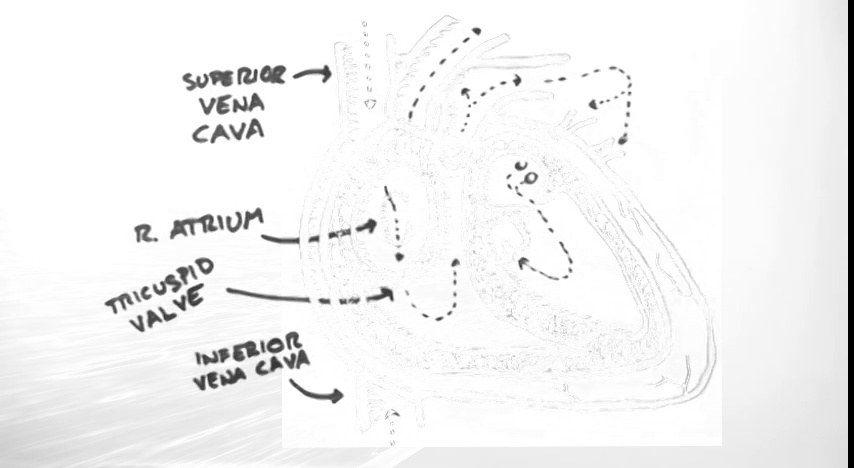 SUPERIOR
VENA
CAVA
R. ATRIUM
TRICUSPID
VALVE
INFERIOR
VENA CAVA